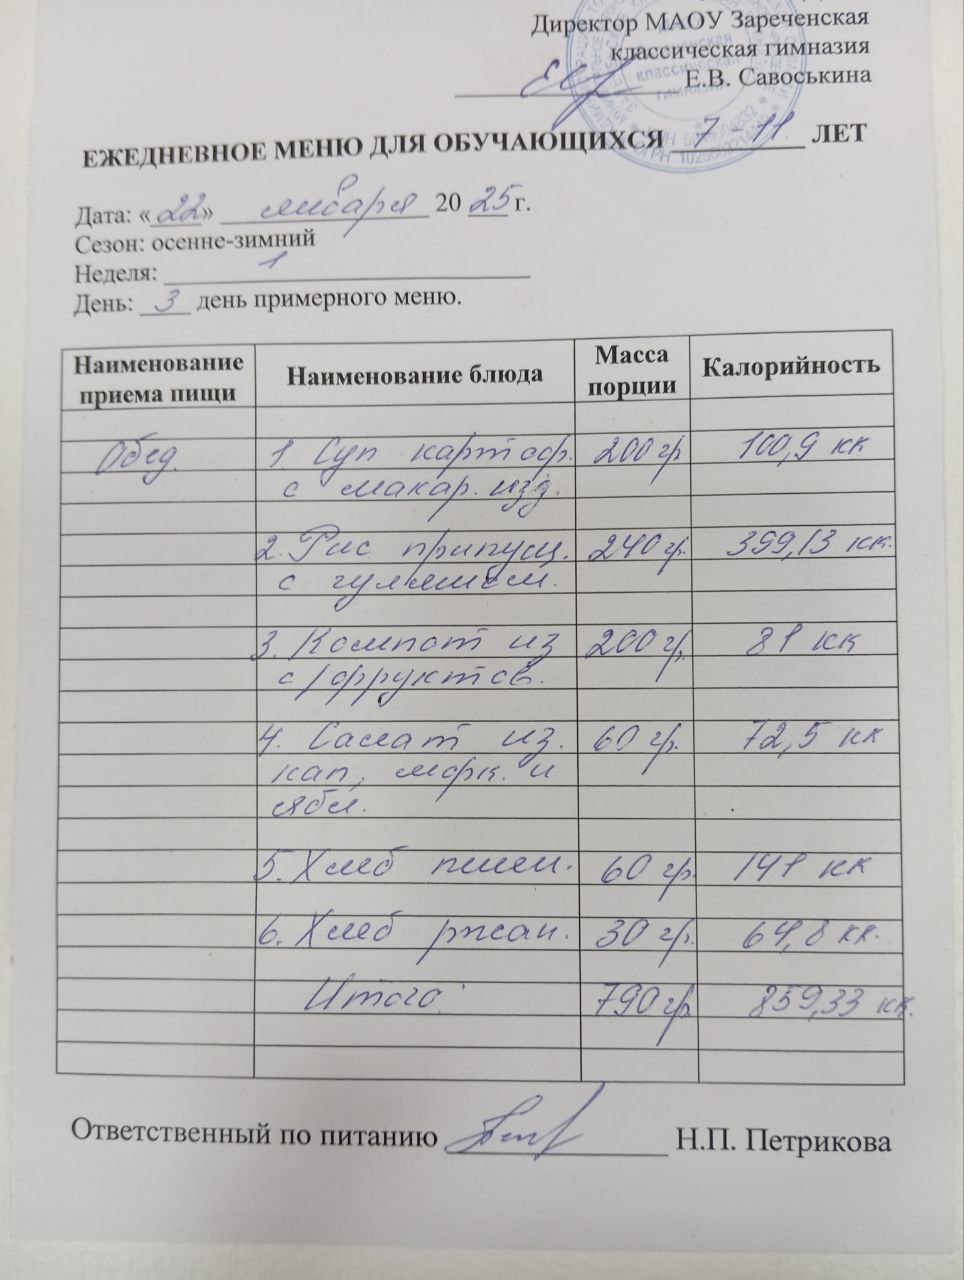 Директор МАОУ Зареченская
классическая гимназия
Е.В. Савоськина
ЕЖЕДНЕВНОЕ МЕНЮ ДЛЯ ОБУЧАЮЩИХСЯ 7 - 11 ЛЕТ
Дата: «22» января 20 25 г.
Сезон: осенне-зимний
Неделя: 1
День: 3 день примерного меню.
Наименование приема пищи Наименование блюда Масса порции Калорийность
Обед. 1. Суп картоф. 200 гр 100,9 кк
с макар. изд.
2. Рис припущ. 240 гр. 399,13 кк.
с гуляшом.
3. Компот из 200 гр. 81 кк
с/фруктов.
4. Салат из. 60 гр. 72,5 кк
кап, морк. и
ябл.
5. Хлеб пшен. 60 гр. 141 кк
6. Хлеб ржан. 30 гр. 64,8 кк.
Итого: 790 гр 859,33 кк.
Ответственный по питанию Н.П. Петрикова